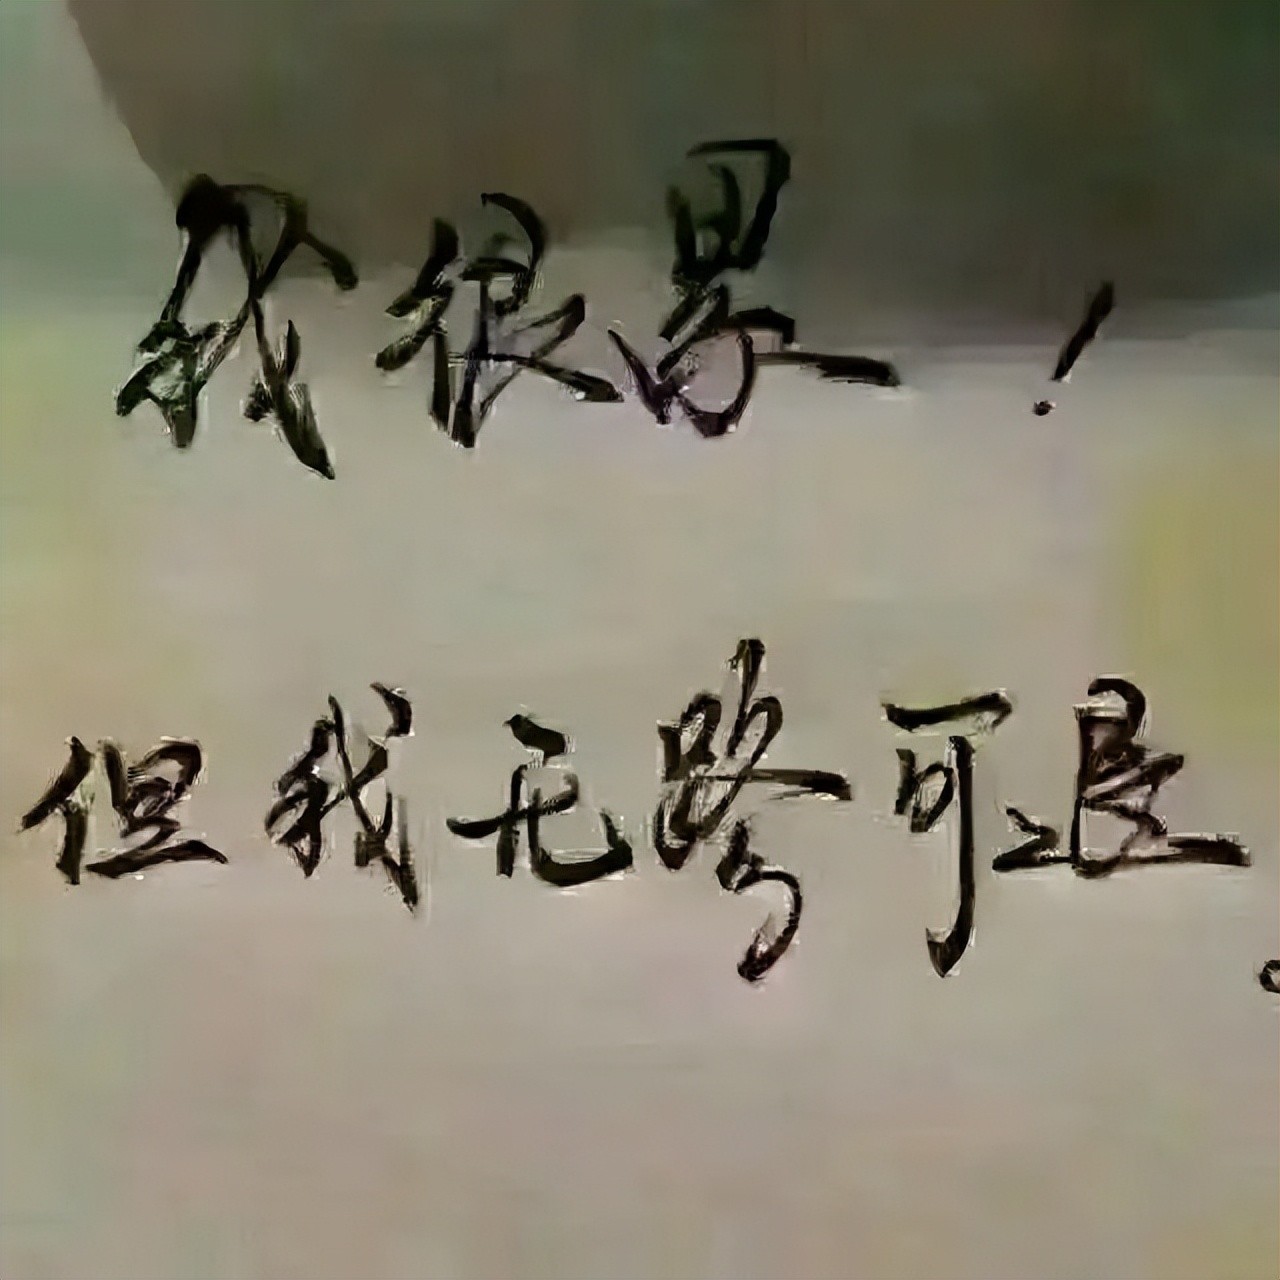 我很累!
但我无路可退。